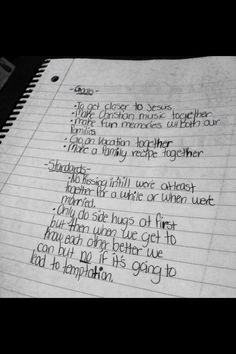 -Goals-
• To get closer to Jesus.
• Make Christian music together
• Make fun memories w/ Both our
families
• Go on Vacation together
• Make a family recipe together
-Standards-
• No kissing intill were atleast
together for a while or when were
married.
• Only do side hugs at first
but then when we get to
know each other better we
can but no if it's going to
lead to temptation.